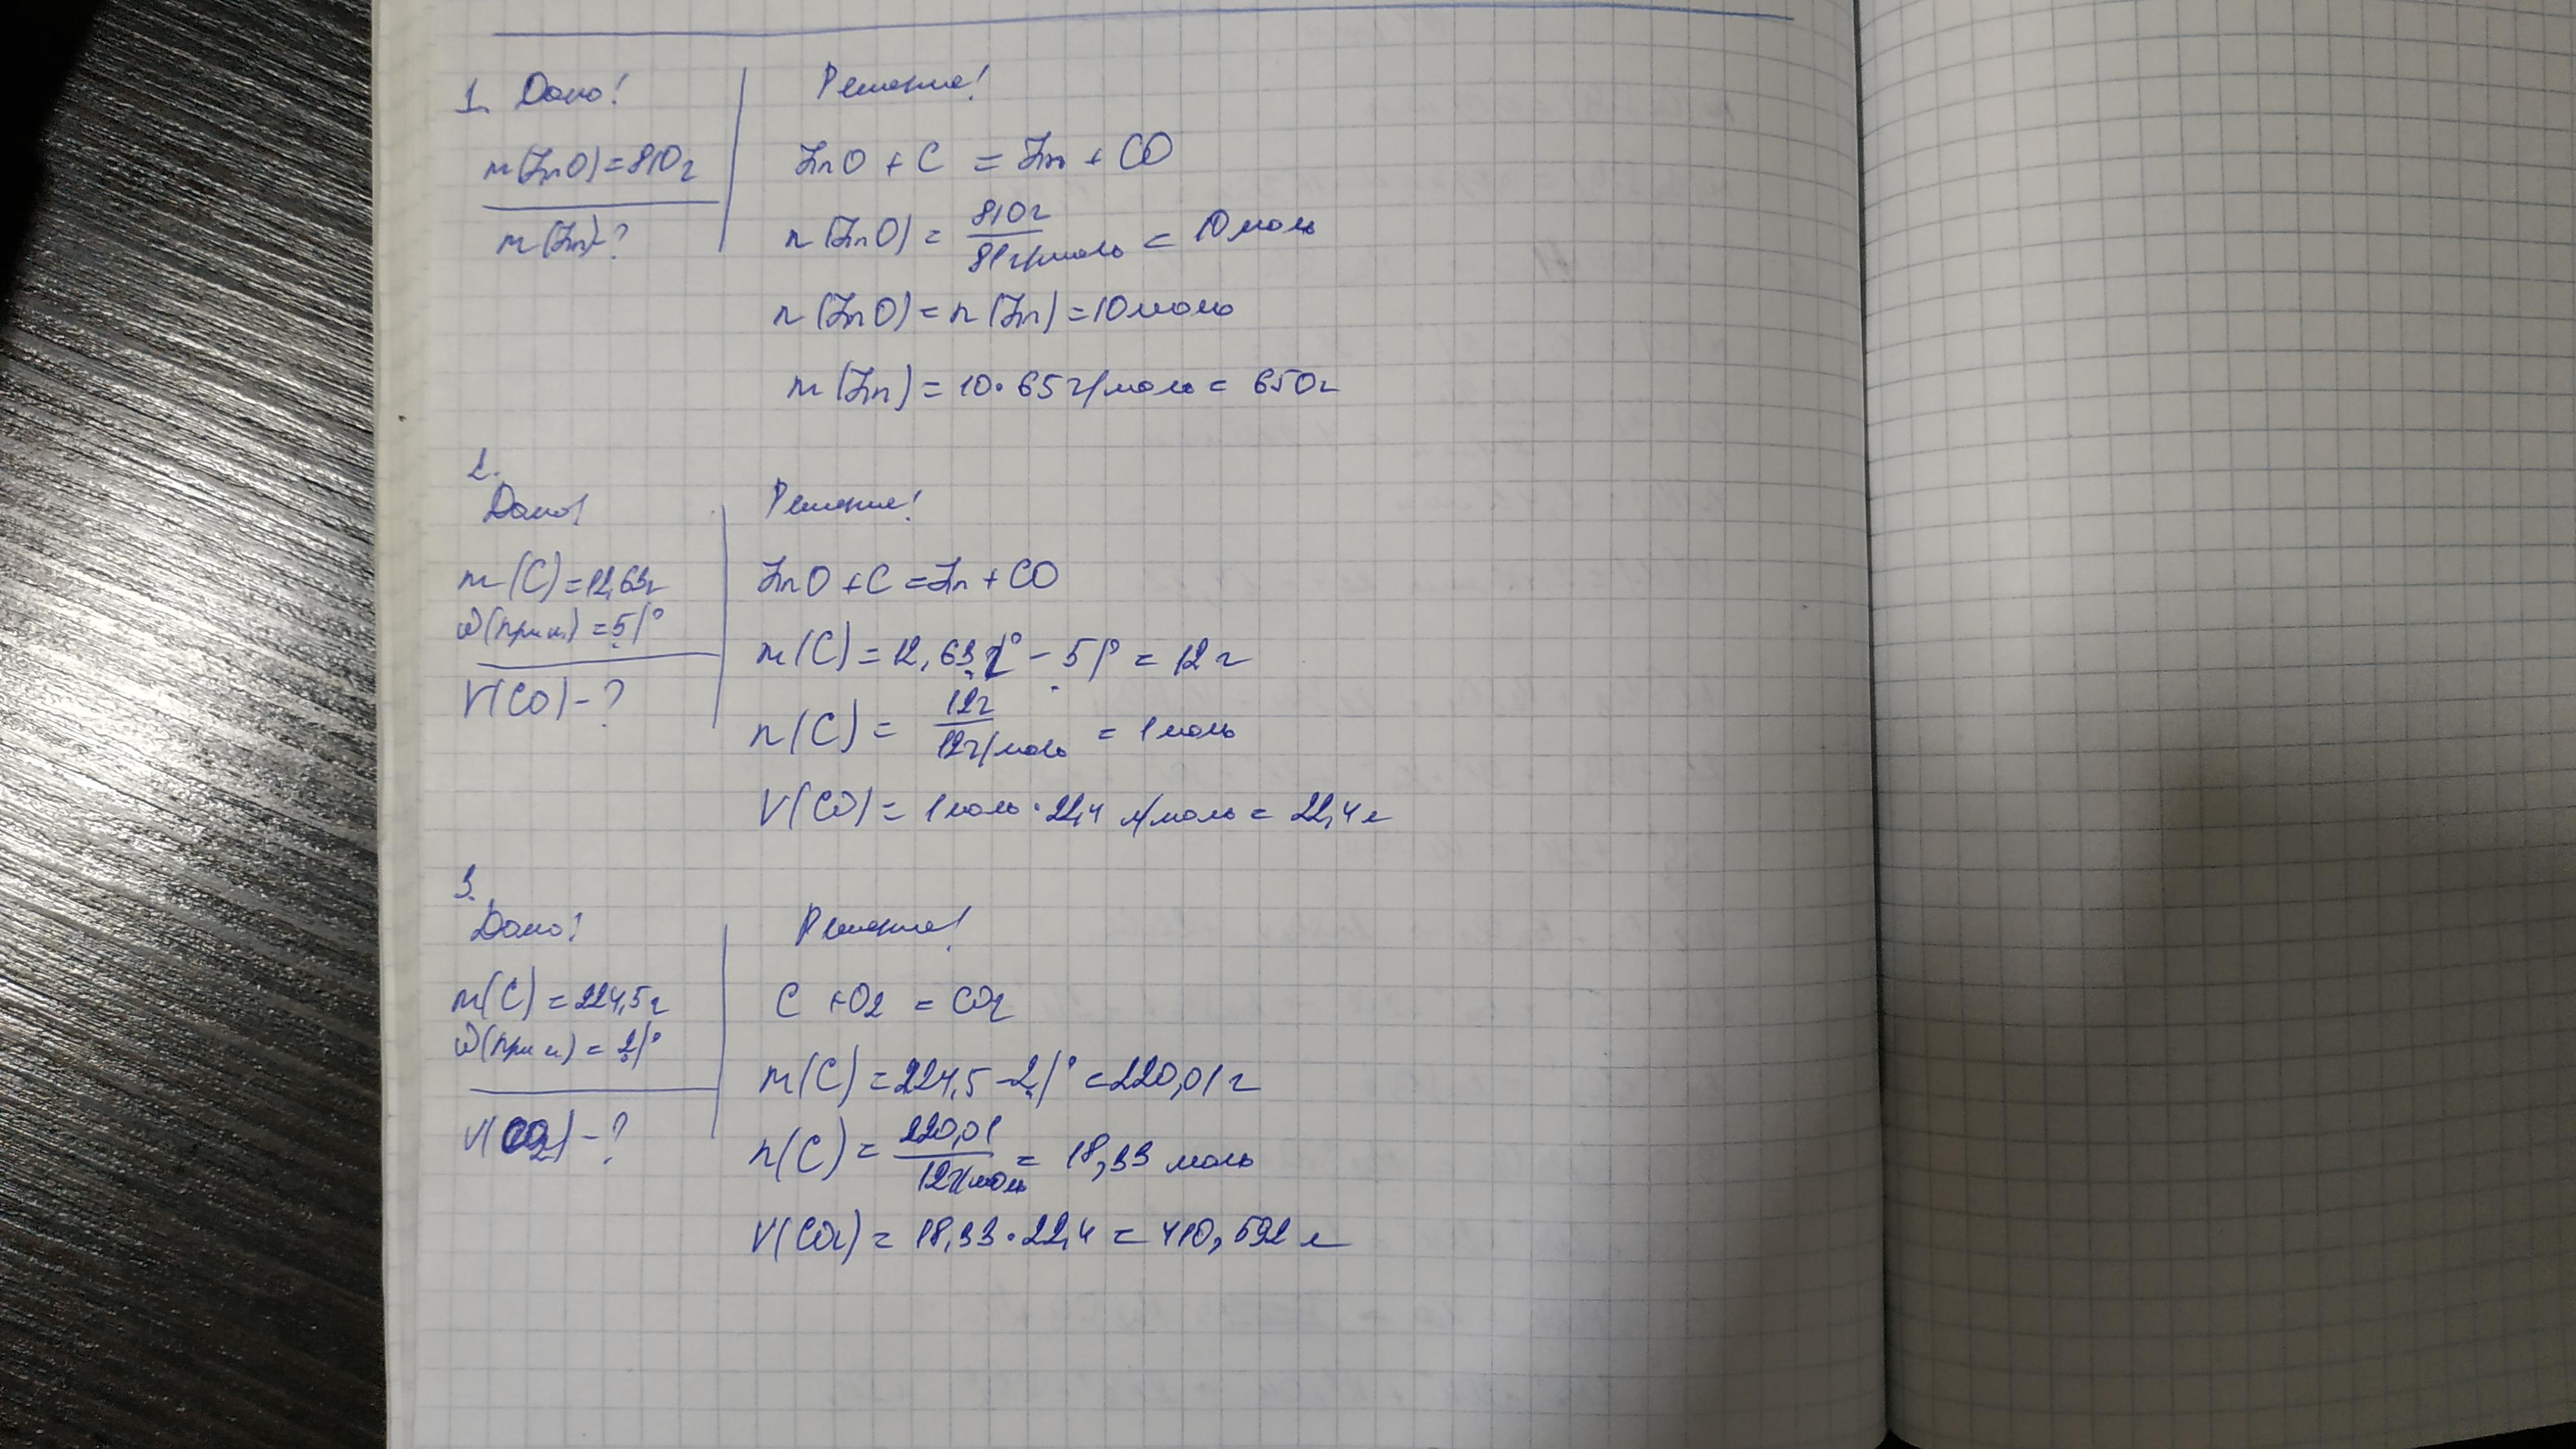 1. Дано!
m(ZnO)=810г
m(Zn)-?
Решение!
ZnO + C = Zn + CO
n(ZnO) = 810г / 81г/моль = 10 моль
n(ZnO) = n(Zn) = 10 моль
m(Zn) = 10 · 65 г/моль = 650г
2.
Дано!
m(C) = 12,63г
ω(прим) = 5%
V(CO) - ?
Решение!
ZnO + C = Zn + CO
m(C) = 12,63 - 5% = 12 г
n(C) = 12г / 12г/моль = 1 моль
V(CO) = 1 моль · 22,4 л/моль = 22,4 л
3.
Дано!
m(C) = 224,5г
ω(прим) = 2%
V(CO2) - ?
Решение!
C + O2 = CO2
m(C) = 224,5 - 2% = 220,01 г
n(C) = 220,01 / 12г/моль = 18,33 моль
V(CO2) = 18,33 · 22,4 = 410,592 л